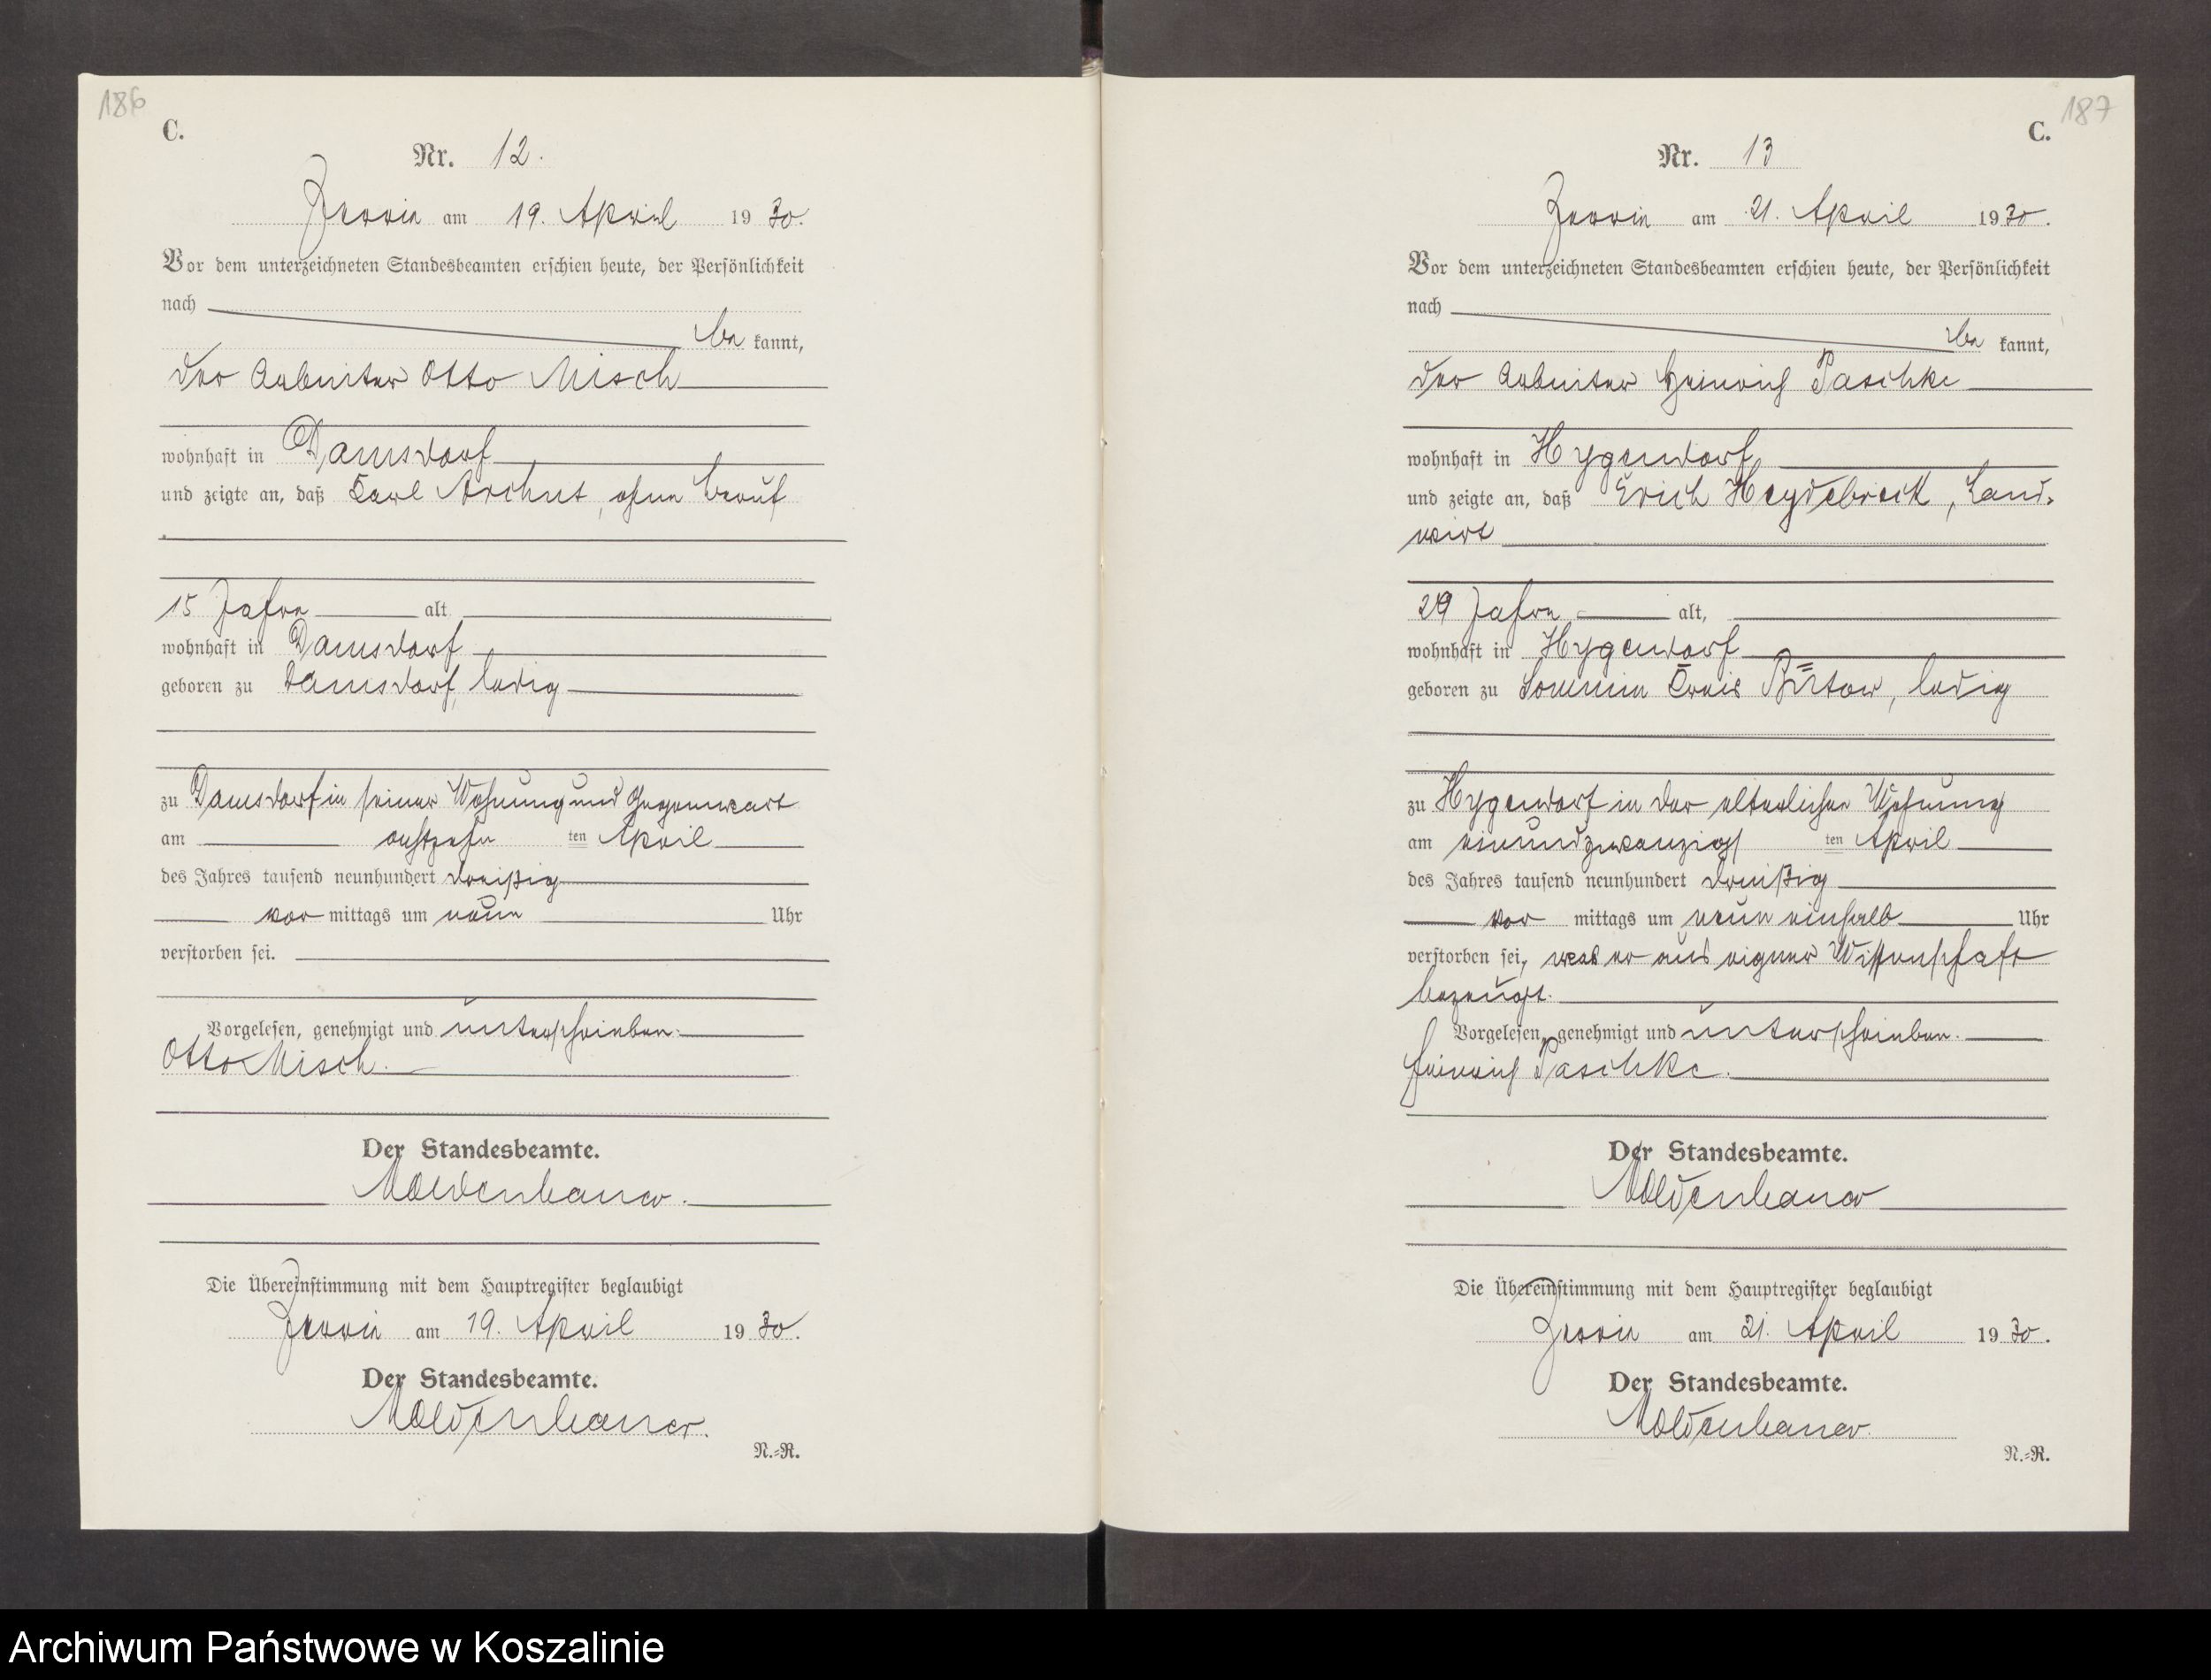 186
C.
Nr. 12.
Jerrin am 19. April 1930.
Vor dem unterzeichneten Standesbeamten erschien heute, der Persönlichkeit
nach
be kannt,
der Arbeiter Otto Misch
wohnhaft in Damsdorf
und zeigte an, daß Karl Archut, ohne Beruf
15 Jahre alt
wohnhaft in Damsdorf
geboren zu Damsdorf, ledig
zu Damsdorf in seiner Wohnung und Gegenwart
am achtzehn ten April
des Jahres tausend neunhundert dreißig
vor mittags um neun Uhr
verstorben sei.
Vorgelesen, genehmigt und unterschrieben.
Otto Misch.
Der Standesbeamte.
Moldenhauer.
Die Übereinstimmung mit dem Hauptregister beglaubigt
Jerrin am 19. April 1930.
Der Standesbeamte.
Moldenhauer.
N.=R.
187
C.
Nr. 13
Jerrin am 21. April 1930.
Vor dem unterzeichneten Standesbeamten erschien heute, der Persönlichkeit
nach
be kannt,
der Arbeiter Heinrich Paschke
wohnhaft in Hygendorf
und zeigte an, daß Erich Heydebreck, Land-
wirt
29 Jahre alt,
wohnhaft in Hygendorf
geboren zu Sommin Kreis Bütow, ledig
zu Hygendorf in der elterlichen Wohnung
am einundzwanzigs ten April
des Jahres tausend neunhundert dreißig
vor mittags um neun einhalb Uhr
verstorben sei, was er aus eigner Wissenschaft
bezeugt.
Vorgelesen, genehmigt und unterschrieben.
Heinrich Paschke.
Der Standesbeamte.
Moldenhauer
Die Übereinstimmung mit dem Hauptregister beglaubigt
Jerrin am 21. April 1930.
Der Standesbeamte.
Moldenhauer.
N.=R.
Archiwum Państwowe w Koszalinie